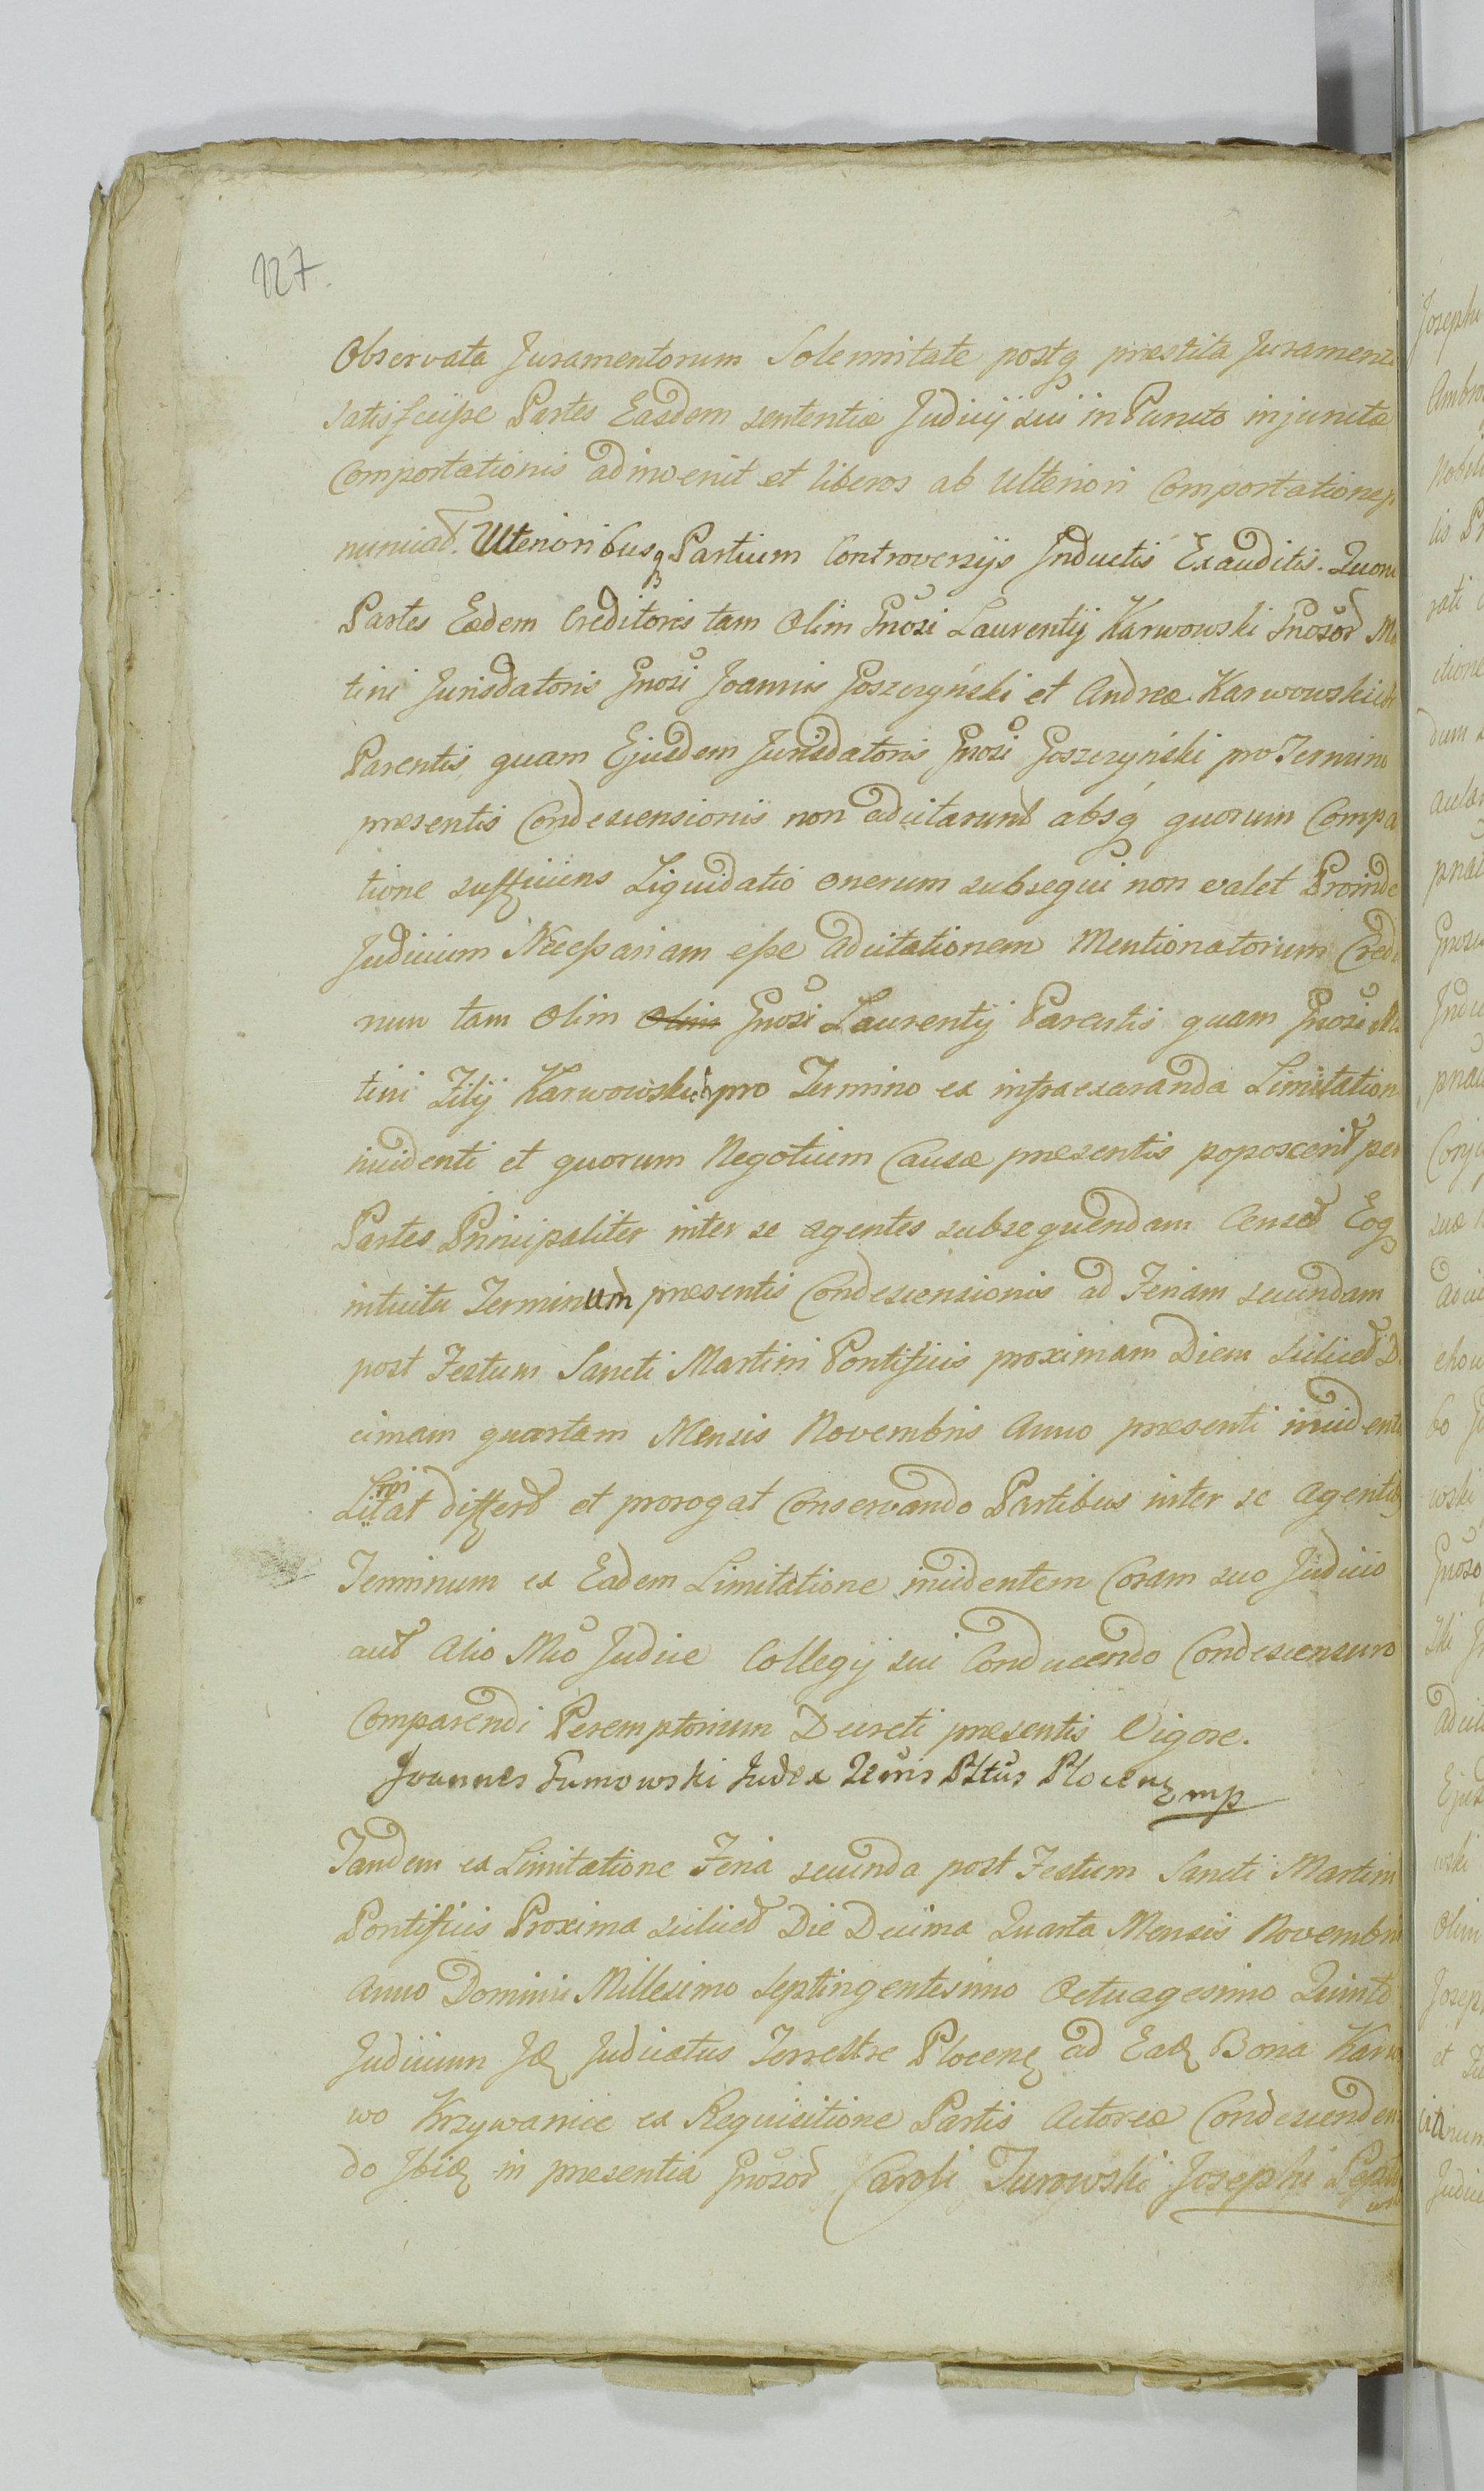 127.
Observata Juramentorum Solennitate postq præstita Jurament
satisfecisse Partes Easdem sententiæ Judicij sui in Puncto injunctæ
Comportationis adinvenit et liberos ab Ulteriori Comportatione
nunciat. Ulterioribusq Partium Controversijs Inductis Exauditis. Quon
Partes Eædem Creditores tam Olim Gnosi Laurentij Karwowski Gnosor Ma
tini Jurisdatoris Gnosi Joannis Goszczyński et Andreæ Karwowski
Parentis, quam Ejusdem Jurisdatoris Gnosi Goszczyński pro Termino
præsentis Condescensionis non adcitarunt absq quorum Compa
tione sufficiens Liquidatio onerum subsequi non valet Proinde
Judicium Necessariam esse adcitationem Mentionatorum Credi
rum tam Olim Olim Gnosi Laurentij Parentis quam Gnosi Ma
tini Filij Karwowski pro Termino ex infraexaranda Limitation
incidenti et quorum Negotium Causæ præsentis poposcerit per
Partes Principaliter inter se agentes subsequendam Censet Eoq
intuitu Terminum præsentis Condescensionis ad Feriam secundam
post Festum Sancti Martini Pontificis proximam Diem Scilicet D
cimam quartam Mensis Novembris Anno præsenti incident
Litat differt et prorogat Conservando Partibus inter se agentib
Terminum ex Eadem Limitatione incidentem Coram suo Judicio
aut Alio Mco Judice Collegij sui Conducendo Condescensuro
Comparendi Peremptorium Decreti præsentis Vigore.
Joannes Fumowski Judex Terris Pltus Plocen mp
Tandem ex Limitatione Feria secunda post Festum Sancti Martini
Pontificis Proxima scilicet Die Decima Quarta Mensis Novembris
Anno Domini Millesimo Septingentesimo Octuagesimo Quinto
Judicium Judicatus Terrestre Plocen ad Eadem Bona Karw
wo Krzywanice ex Requisitione Partis Actoreæ Condescenden
do Ibidem in præsentia Gnosor Caroli Turowski Josephi